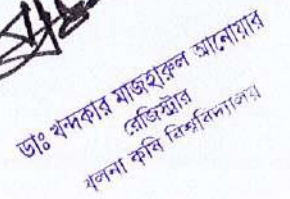 ডাঃ খন্দকার মাজহারুল আনোয়ার
রেজিস্ট্রার
খুলনা কৃষি বিশ্ববিদ্যালয়